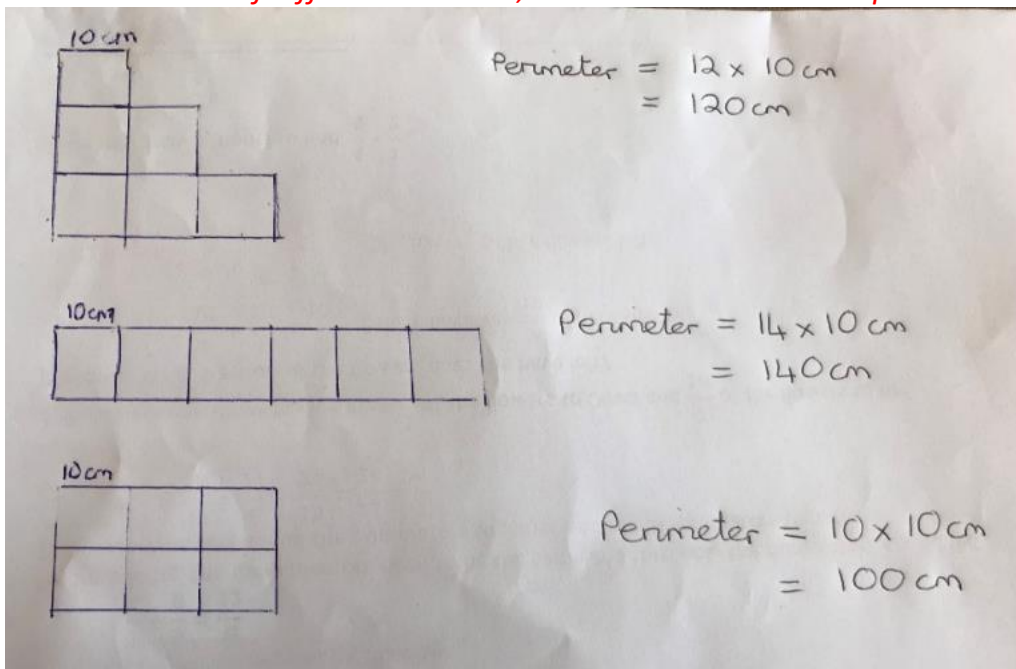 10 cm
Perimeter = 12 x 10 cm
= 120 cm
10 cm
Perimeter = 14 x 10 cm
= 140 cm
10 cm
Perimeter = 10 x 10 cm
= 100 cm